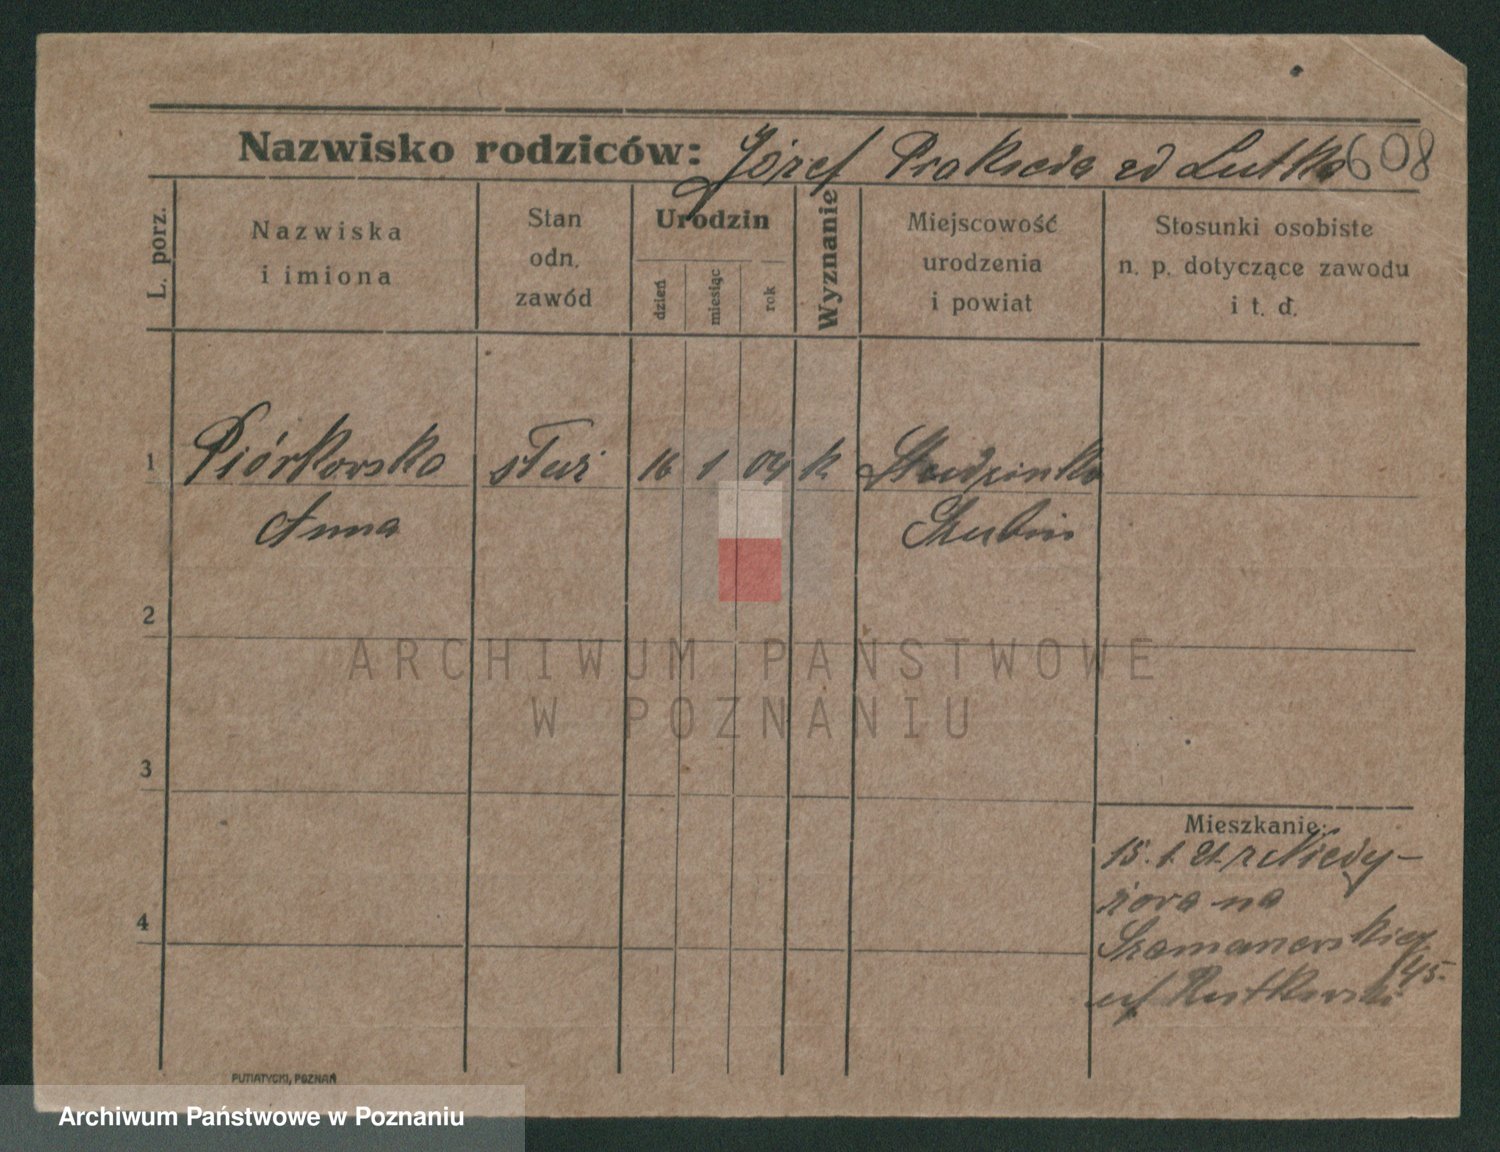 608
Nazwisko rodziców: Józef Prakseda zd Lutka
L. porz.
Nazwiska
i imiona
Stan
odn.
zawód
Urodzin
dzień
miesiąc
rok
Wyznanie
Miejscowość
urodzenia
i powiat
Stosunki osobiste
n. p. dotyczące zawodu
i t. d.
1 Piórkowska służ 16 1 04 k
Anna Szubin
2
ARCHIWUM PAŃSTWOWE
W POZNANIU
3
4
Mieszkanie:
15. 1. 21 z Niedy-
na
45.
Rutkowski
PUTIATYCKI, POZNAŃ
Archiwum Państwowe w Poznaniu